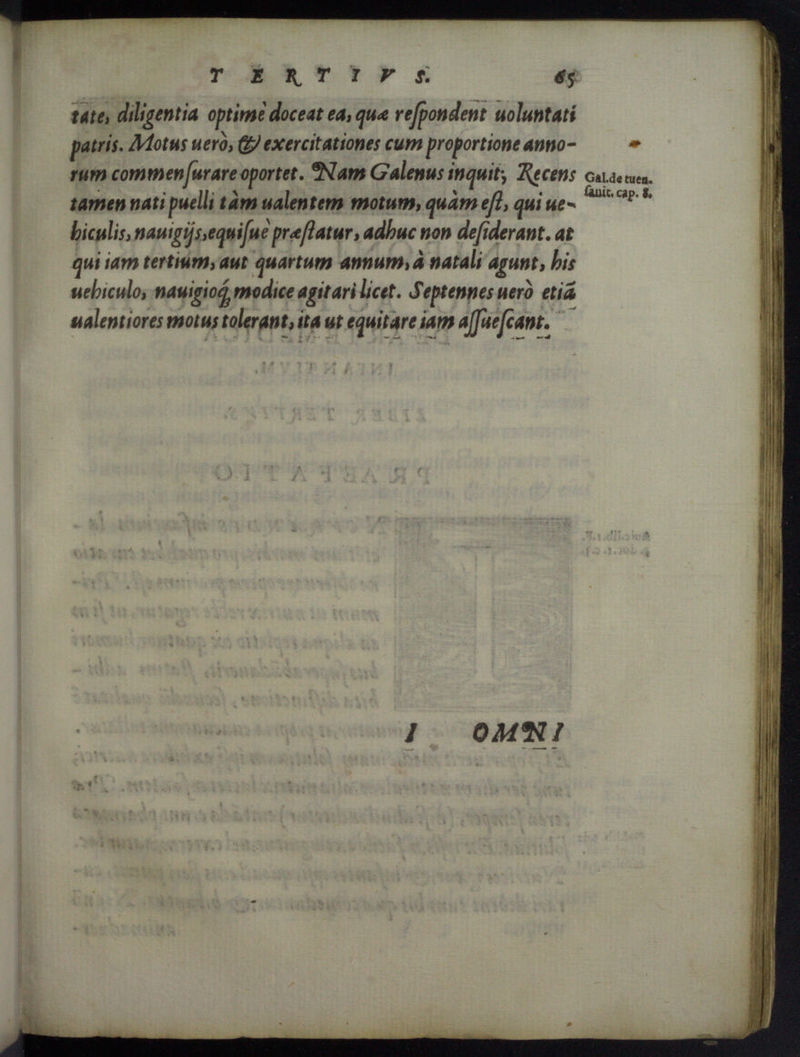 TERTIVS. 65
tate, diligentia optimè doceat ea, quæ reſpondent uoluntati
patris. Motus uerò, & exercitationes cum proportione anno-
rum commenſurare oportet. Nam Galenus inquit; Recens
tamen nati puelli tàm ualentem motum, quàm eſt, qui ue-
hiculis, nauigijs, equiſuè præſtatur, adhuc non deſiderant. at
qui iam tertium, aut quartum annum, à natali agunt, his
uehiculo, nauigioq́; modice agitari licet. Septennes uerò etiã
ualentiores motus tolerant, ita ut equitare iam aſſueſcant.
Gal. de tuen.
ſanit. cap. 8.
I OMNI